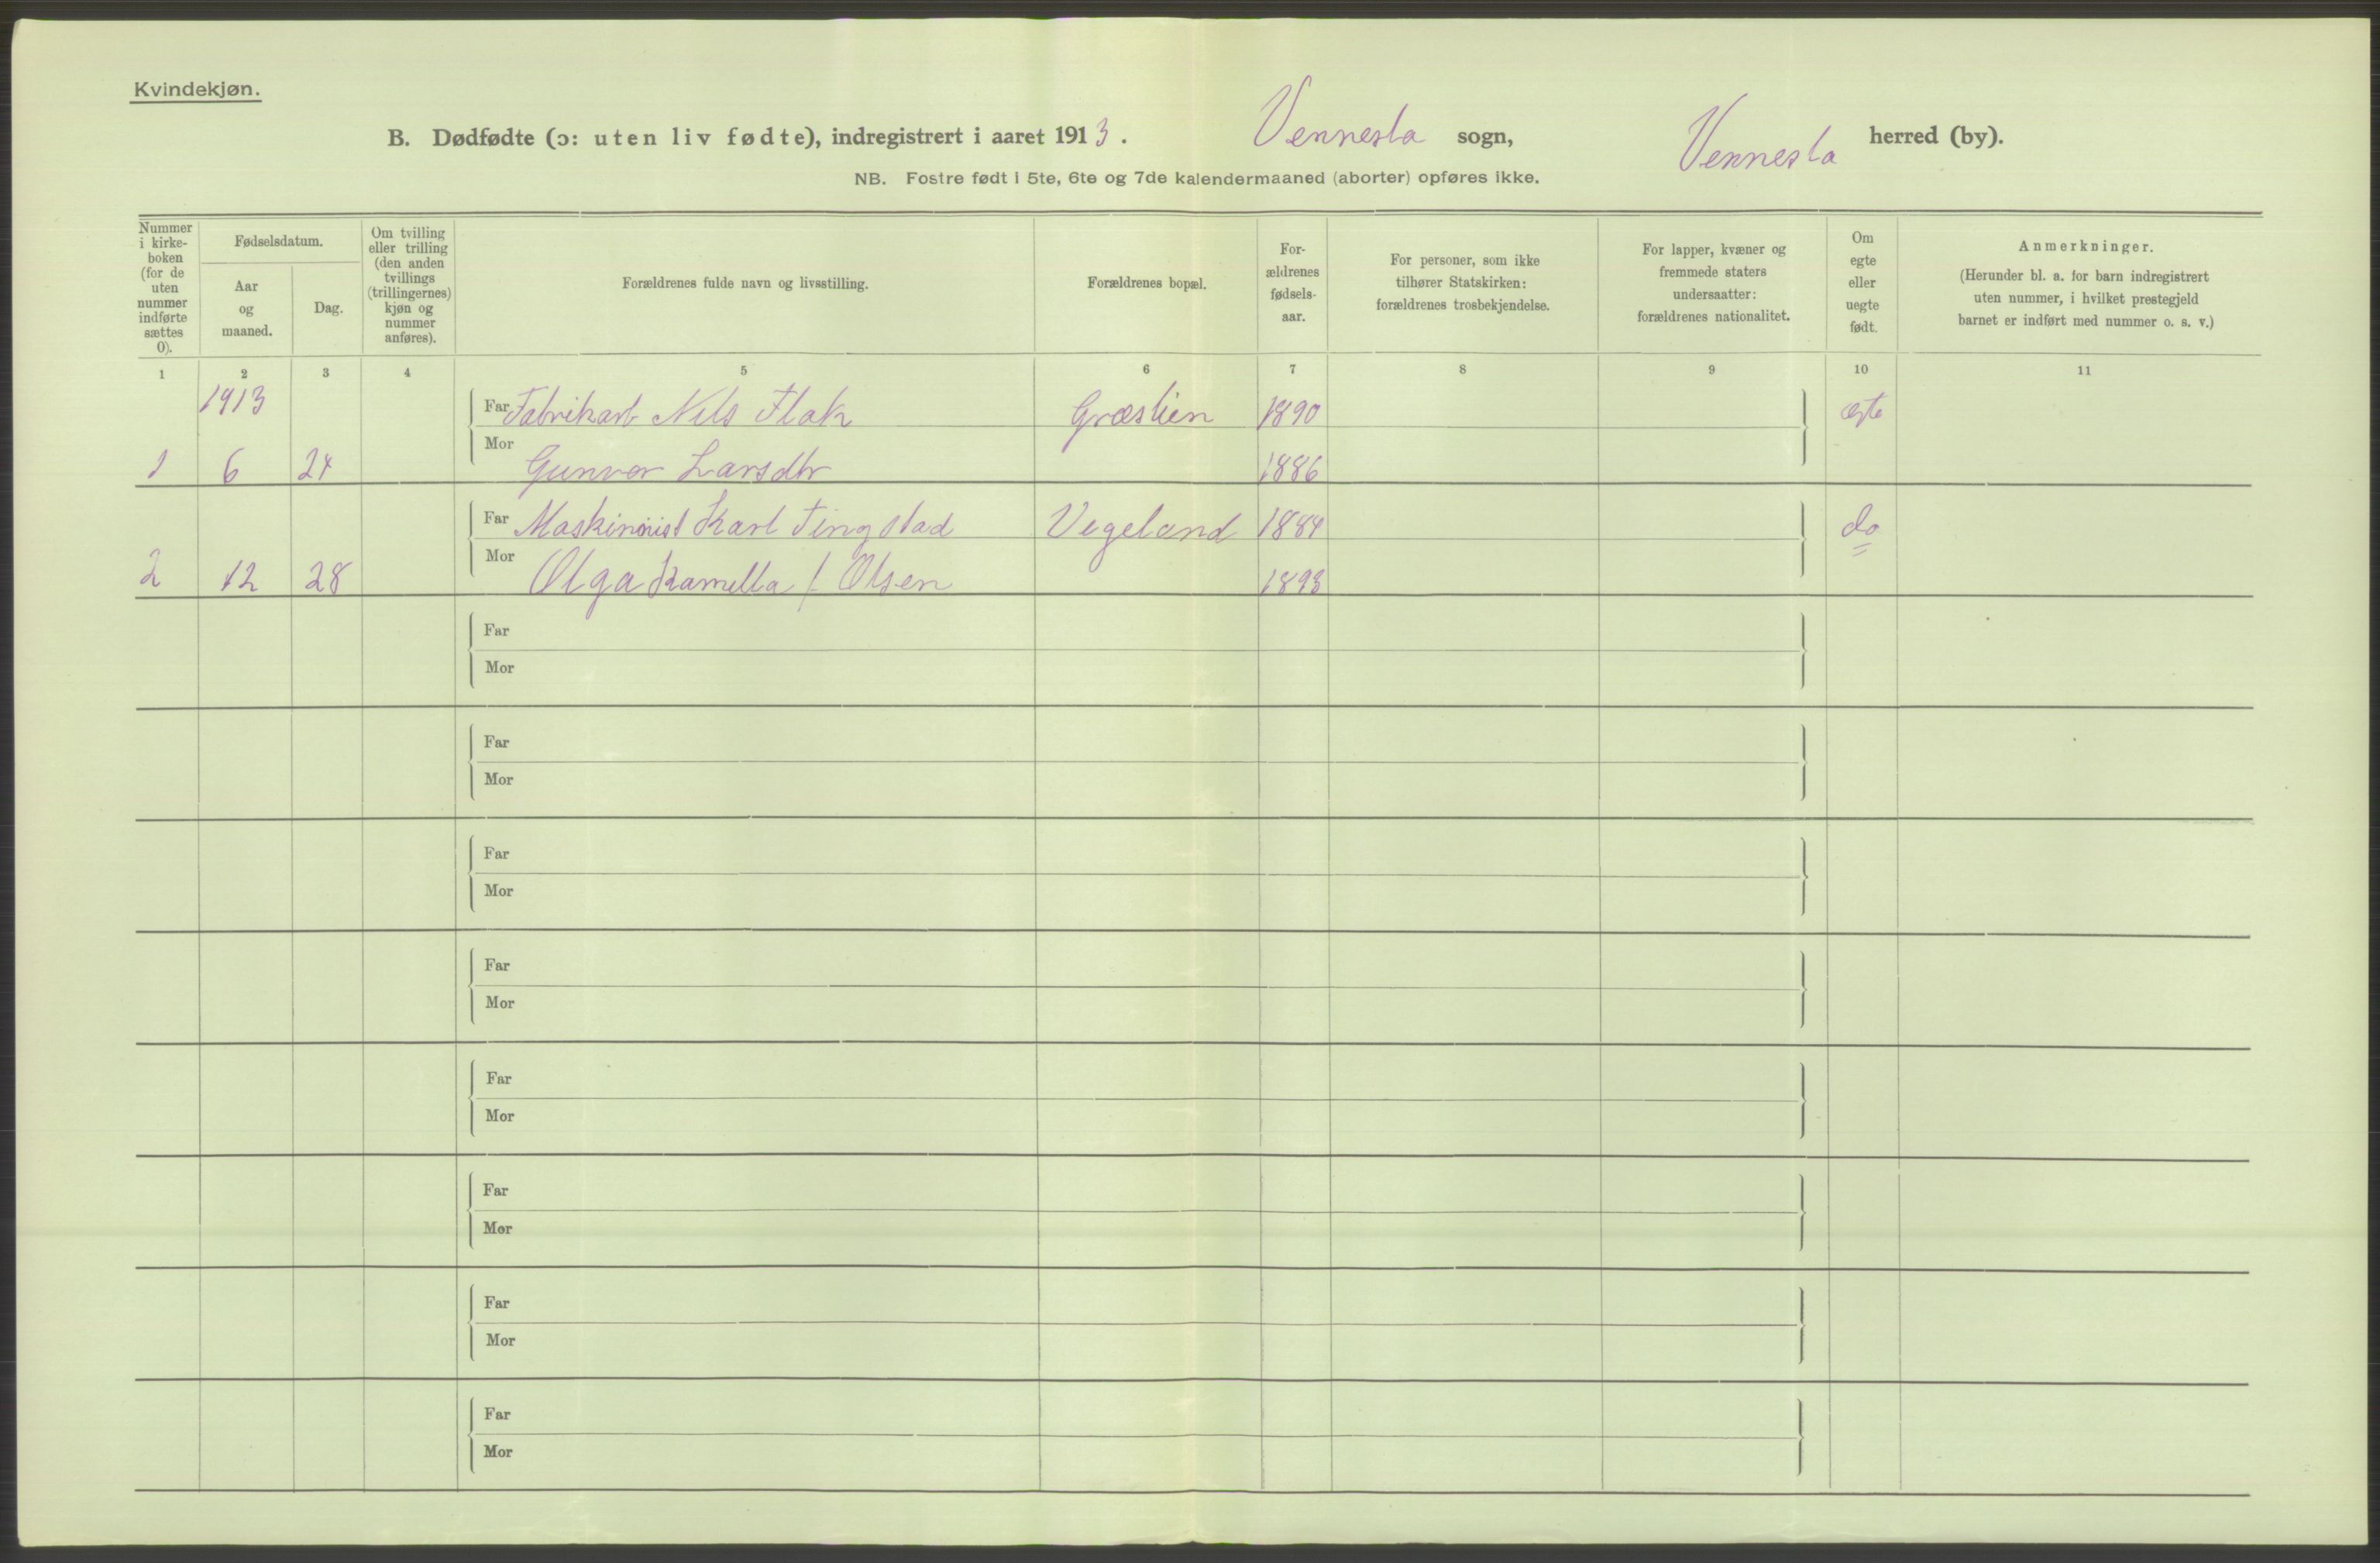 Kvindekjøn.
B. Dødfødte (ɔ: uten liv fødte), indregistrert i aaret 1913. Vennesla sogn, Vennesla herred (by).
NB. Fostre født i 5te, 6te og 7de kalendermaaned (aborter) opføres ikke.
Nummer
i kirke-
boken
(for de
uten
nummer
indførte
sættes
0).
Fødselsdatum.
Aar
og
maaned.
Dag.
Om tvilling
eller trilling
(den anden
tvillings
(trillingernes)
kjøn og
nummer
anføres).
Forældrenes fulde navn og livsstilling.
Forældrenes bopæl.
For-
ældrenes
fødsels-
aar.
For personer, som ikke
tilhører Statskirken:
forældrenes trosbekjendelse.
For lapper, kvæner og
fremmede staters
undersaatter:
forældrenes nationalitet.
Om
egte
eller
uegte
født.
Anmerkninger.
(Herunder bl. a. for barn indregistrert
uten nummer, i hvilket prestegjeld
barnet er indført med nummer o. s. v.)
1 2 3 4 5 6 7 8 9 10 11
1913 Far Fabrikarb Nils Flak Græslien 1890 egte
1 6 24 Mor Gunvor Larsdtr 1886
Far Maskinist Karl Tingstad Vegeland 1884 do
2 12 28 Mor Olga Kamilla f Olsen 1893
Far
Mor
Far
Mor
Far
Mor
Far
Mor
Far
Mor
Far
Mor
Far
Mor
Far
Mor